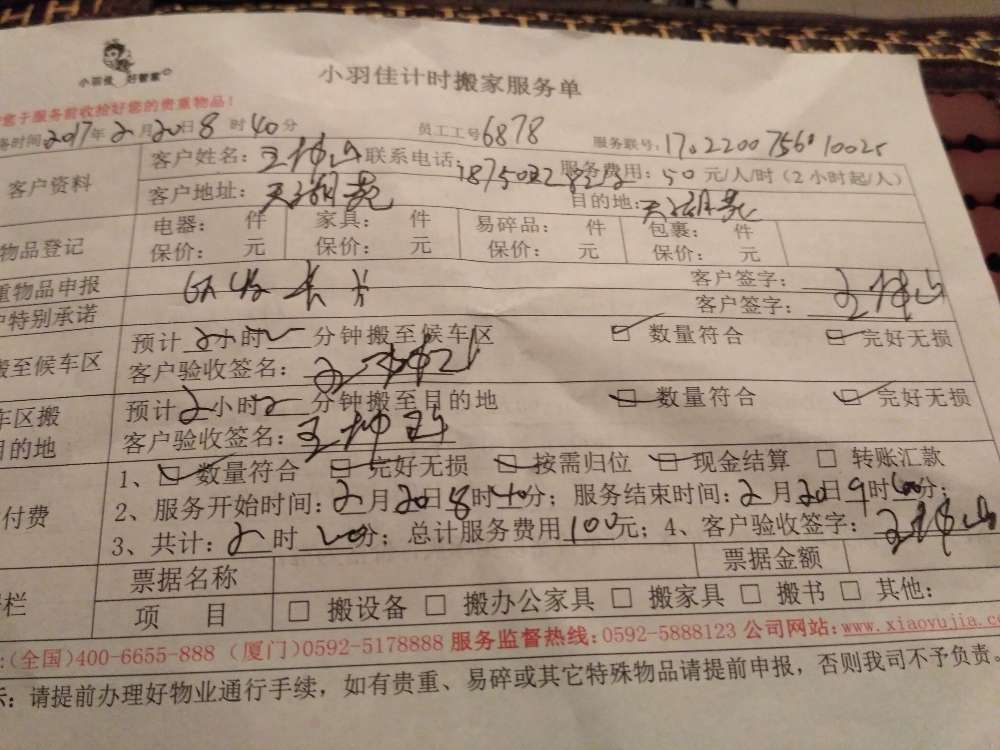 小羽佳 好管家
小羽佳计时搬家服务单
您于服务前收拾好您的贵重物品!
务时间2017年2月20日8时40分 员工工号6878 服务联号:
客户资料 客户姓名: 联系电话: 服务费用:50元/人/时(2小时起/人)
客户地址: 目的地:
物品登记 电器: 件 家具: 件 易碎品: 件 包裹: 件
保价: 元 保价: 元 保价: 元 保价: 元
重物品申报 客户签字:
户特别承诺 客户签字:
搬至候车区 预计2小时 分钟搬至候车区 数量符合 完好无损
客户验收签名:
车区搬 预计2小时 分钟搬至目的地 数量符合 完好无损
目的地 客户验收签名:
付费 1、数量符合 完好无损 按需归位 现金结算 转账汇款
2、服务开始时间:2月20日8时40分;服务结束时间:2月20日9时 分;
3、共计:2时 分;总计服务费用100元;4、客户验收签字:
栏 票据名称 票据金额
项 目 搬设备 搬办公家具 搬家具 搬书 其他:
:(全国)400-6655-888 (厦门)0592-5178888 服务监督热线:0592-5888123 公司网站:www.xiaoyujia.c
示:请提前办理好物业通行手续,如有贵重、易碎或其它特殊物品请提前申报,否则我司不予负责。